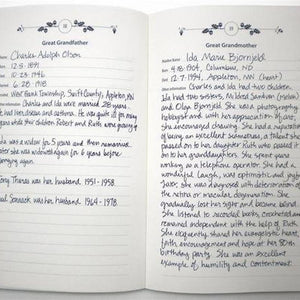 38
Great Grandfather
Name: Charles Adolph Olson
12-3-1891
10-23-1946
6-28-1918
West Bank Township, Swift County, Appleton, MN
information Charles and Ida were married 28 years.
had liver disease and asthma. He was quite ill for many
years while their children Robert and Ruth were growing
was a widow for 5 years and then remarried.
she was widowed again for 6 years before
marrying again.
Tony Thoras was her husband. 1951-1958
Paul was her husband. 1964-1978
39
Great Grandmother
Ida Marie Bjornjeld
4-18-1904, Columbus, ND
12-7-1994, Appleton, MN (heart)
Other information Charles and Ida had two children.
Ida had two sisters, Mildred Sandvan (nissan)
and Olga Bjornjeld. She was a photography
hobbyist and with her appreciation of art,
she encouraged drawing. She had a reputation of
being an excellent seamstress, a talent she
passed on to her daughter Ruth who passed it
on to her granddaughters. She spent years
working as a telephone operator. She had a
wonderful laugh, was optimistic and joyful
later, she was diagnosed with deterioration of
the retina or macular degeneration. She
gradually lost her sight and became blind.
She listened to recorded books, crocheted and
remained independent with the help of Ruth.
She eloquently shared her evangelistic heart,
faith, encouragement and hope at her 80th
birthday party. She was an excellent
example of humility and contentment.